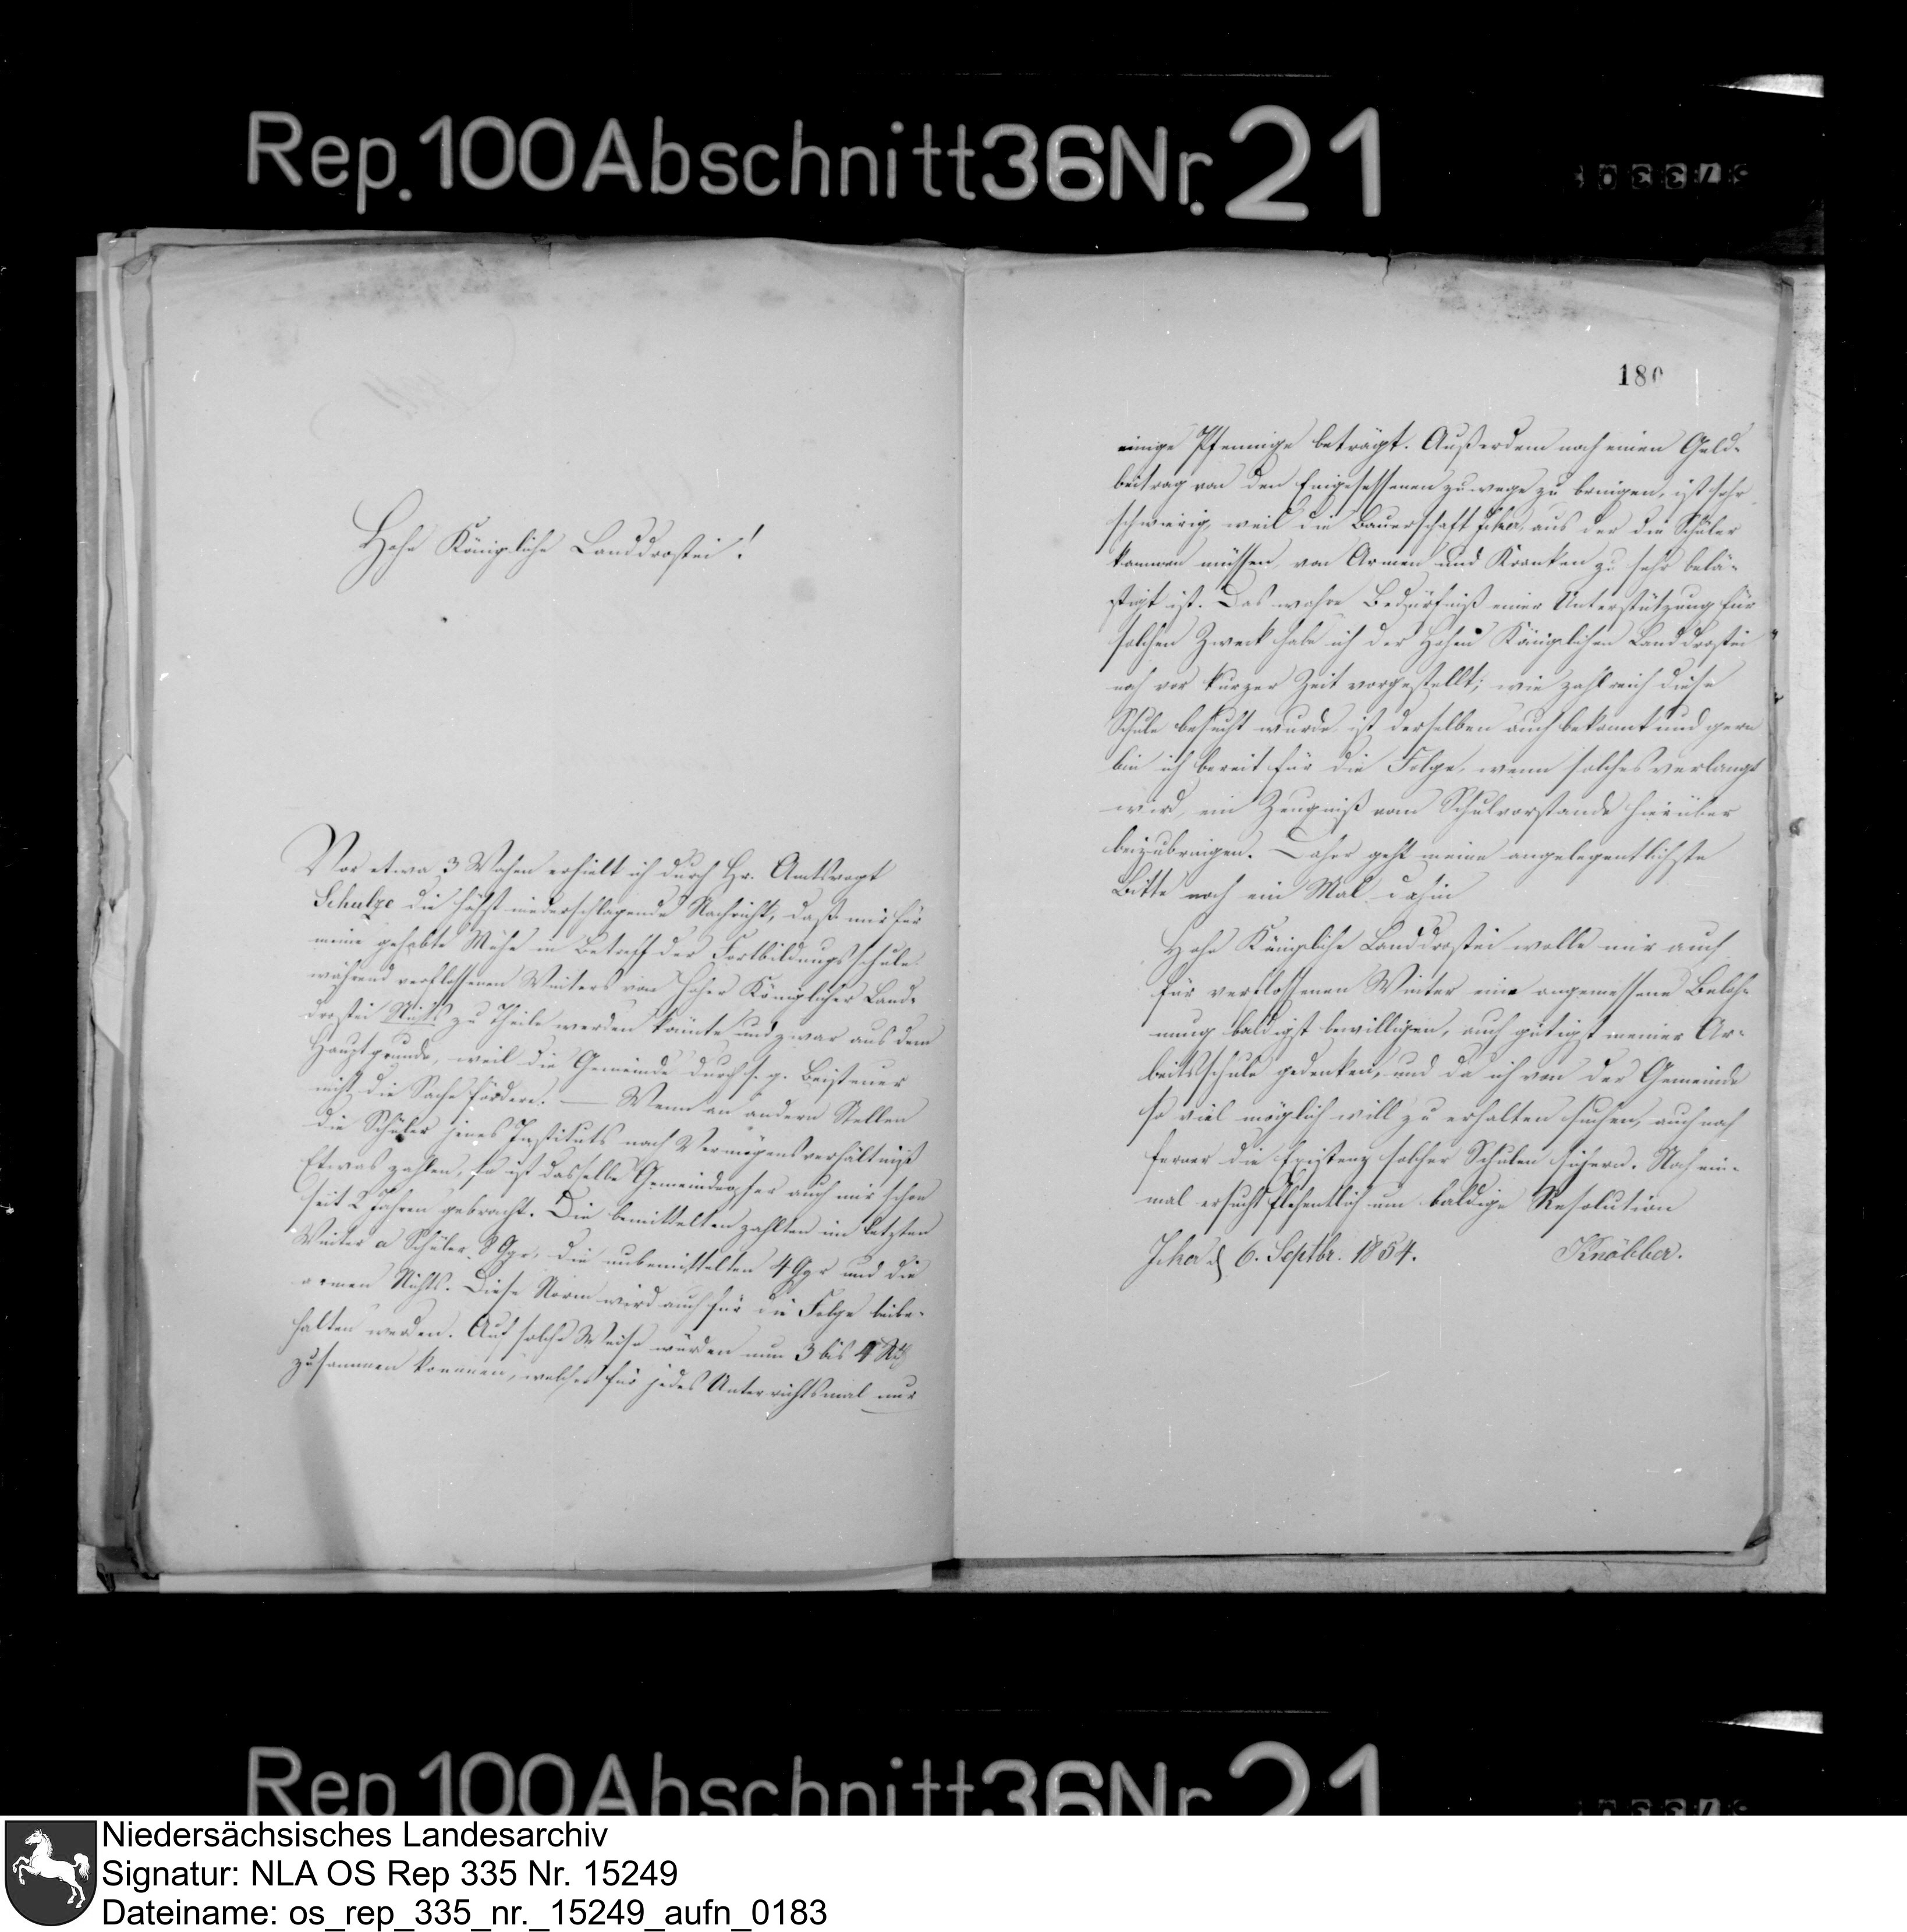 Rep. 100 Abschnitt 36 Nr. 21
Hohe Königliche Landdrostei!
Vor etwa 3 Wochen erhielt ich durch Hr. Amtsvogt
Schulze die höchst niederschlagende Nachricht, daß mir für
meine gehabte Mühe in Betreff der Fortbildungsschule
während verflossenen Winters von Hoher Königlicher Land-
drostei Nichts zu Theile werden könnte und zwar aus dem
Hauptgrunde, weil die Gemeinde durch s. g. Beisteuer
nicht die Sache fördere. — Wenn an andern Stellen
die Schüler jenes Instituts nach Vermögensverhältniß
Etwas zahlen, so ist dasselbe Gemeindeopfer auch mir schon
seit 2 Jahren gebracht. Die bemittelten zahlten im letzten
Winter a Schüler 8 Ggr, die unbemittelten 4 Ggr und die
armen Nichts. Diese Norm wird auch für die Folge beibe-
halten werden. Auf solche Weise würden nun 3 bis 4 Rth
zusammen kommen, welches für jedes Unterrichtsmal nur
180
einige Pfennige beträgt. Außerdem noch einen Geld-
beitrag von den Eingesessenen zuwege zu bringen, ist sehr
schwierig, weil die Bauerschaft Jeker, aus der die Schüler
kommen müssen, von Armen und Kranken zu sehr belä-
stigt ist. Das wahre Bedürfniß einer Unterstützung für
solchen Zweck habe ich der Hohen Königlichen Landdrostei
noch vor kurzer Zeit vorgestellt; wie zahlreich diese
Schule besucht wurde, ist derselben auch bekannt und gern
bin ich bereit für die Folge, wenn solches verlangt
wird, ein Zeugniß vom Schulvorstande hierüber
beizubringen. Daher geht meine angelegentlichste
Bitte noch ein Mal dahin
Hohe Königliche Landdrostei wolle mir auch
für verflossenen Winter eine angemessene Beloh-
nung baldigst bewilligen, auch gütigst meiner Ar-
beitsschule gedenken, und da ich von der Gemeinde
so viel möglich will zu erhalten suchen, auch noch
ferner die Existenz solcher Schulen sichern. Noch ein-
mal ersucht flehentlich um baldige Resolution
Jeker d 6. Septbr. 1854. Knöbber.
Rep. 100 Abschnitt 36 Nr. 21
Niedersächsisches Landesarchiv
Signatur: NLA OS Rep 335 Nr. 15249
Dateiname: os_rep_335_nr._15249_aufn_0183